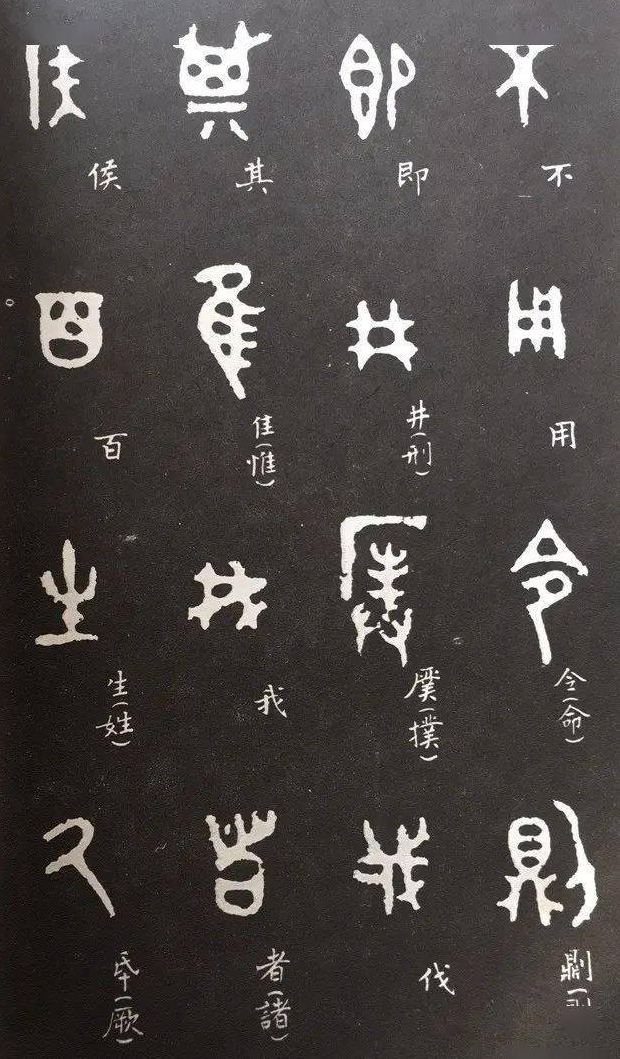 不
用
令(命)
即
井(刑)
(撲)
伐
其
隹(惟)
我
者(諸)
侯
百
生(姓)
氒(厥)